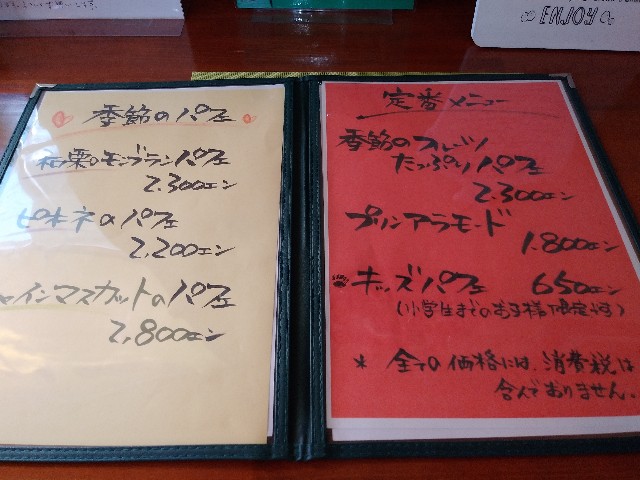 ENJOY
季節のパフェ
和栗のモンブランパフェ
2.300エン
ピオーネのパフェ
2.200エン
インマスカットのパフェ
2.800エン
定番メニュー
季節のフルーツ
たっぷりパフェ
2.300エン
プリンアラモード
1.800エン
キッズパフェ 650エン
(小学生までのお子様限定)
* 全ての価格には、消費税は
含んでありません。